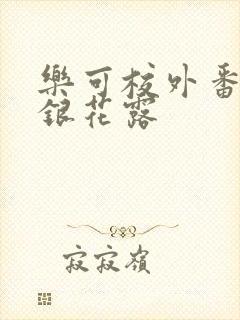 樂可校外番
銀花露
寂寂嶺